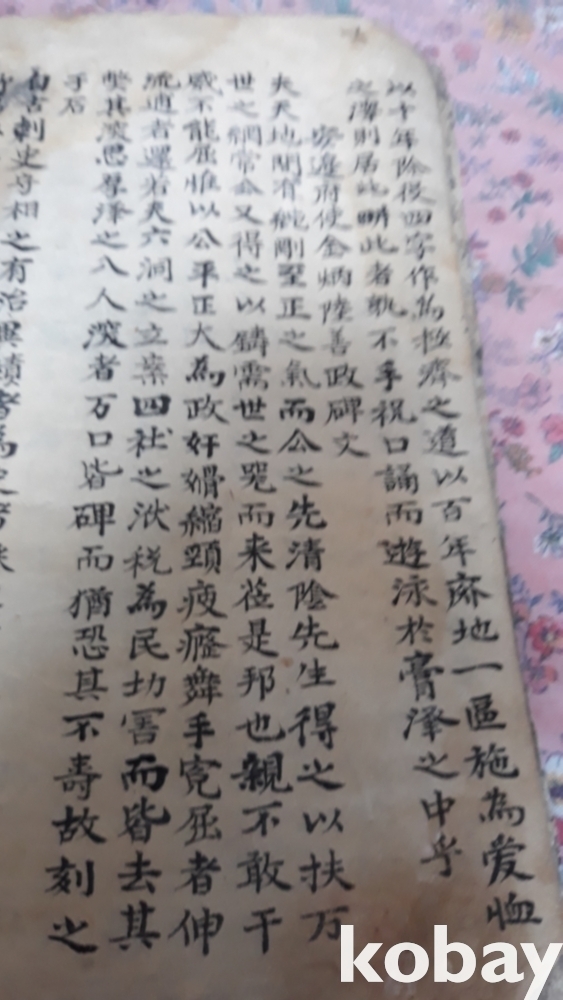 以十年除役四字作為救濟之道以百年廢地一區施為愛恤
之澤則居此畊此者孰不手祝口誦而遊泳於膏澤之中乎
安邊府使金炳陸善政碑文
夫天地間有純剛至正之氣而公之先清陰先生得之以扶万
世之綱常公又得之以鑄需世之器而来莅是邦也親不敢干
威不能屈惟以公平正大為政奸猾縮頸疲癃舞手寃屈者伸
流逋者還若夫六洞之立案四社之浟税為民切害而皆去其
弊其慶恩羣泽之入人深者万口皆碑而猶恐其不壽故刻之
于石
自古刺史守相之有治異績者
kobay